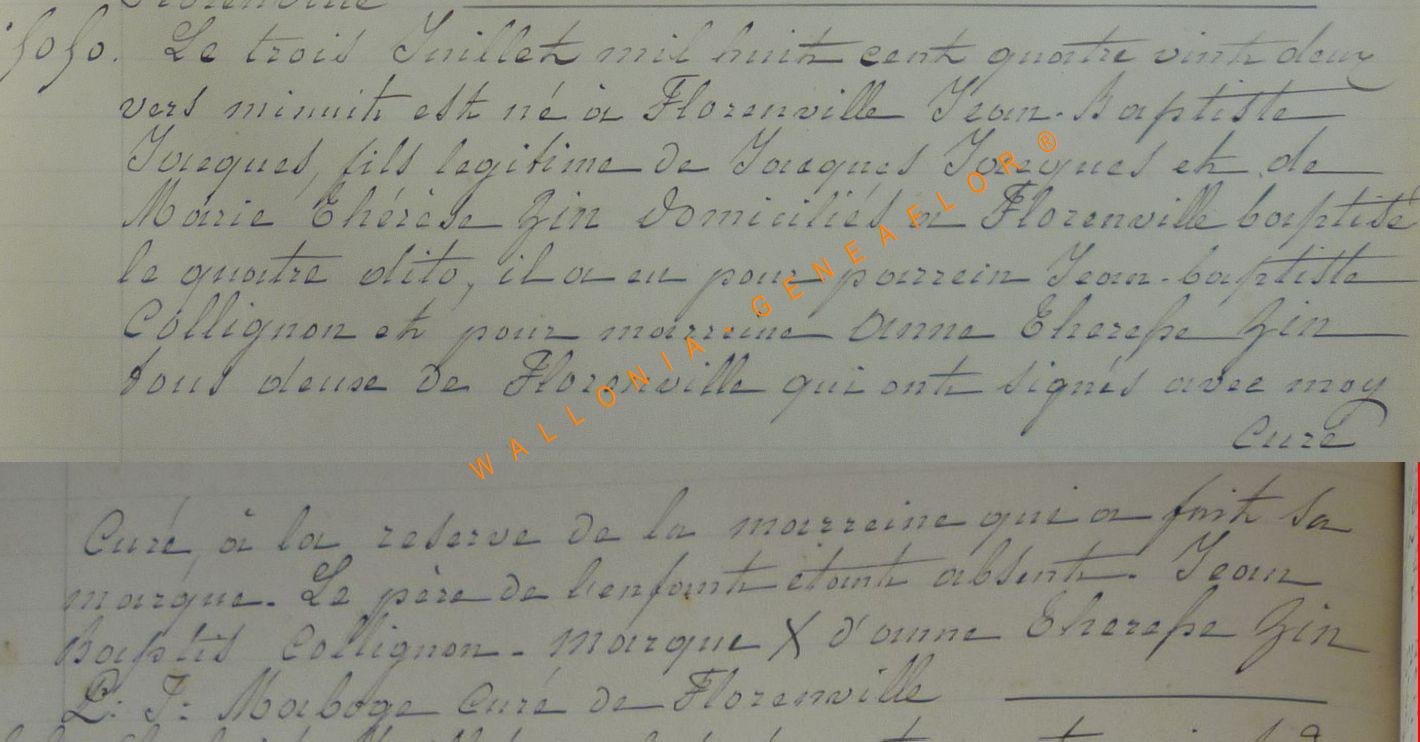 5050. Le trois Juillet mil huit cent quatre vint deux
vers minuit est né à Florenville Jean-Baptiste
Jacques, fils legitime de Jacques Jacques et de
Marie Thérèse Gin domiciliés a Florenville baptisé
le quatre dito, il a eu pour parrein Jean-baptiste
Collignon et pour marreine Anne Therese Gin
tous deux de Florenville qui ont signés avec moy
Curé
Curé, à la reserve de la marreine qui a fait sa
marque. Le père de l'enfant étant absent. Jean
Baptis Collignon - marque X d'anne Therese Gin
J: Maboge Curé de Florenville
WALLONIA - GENEAELOR ®